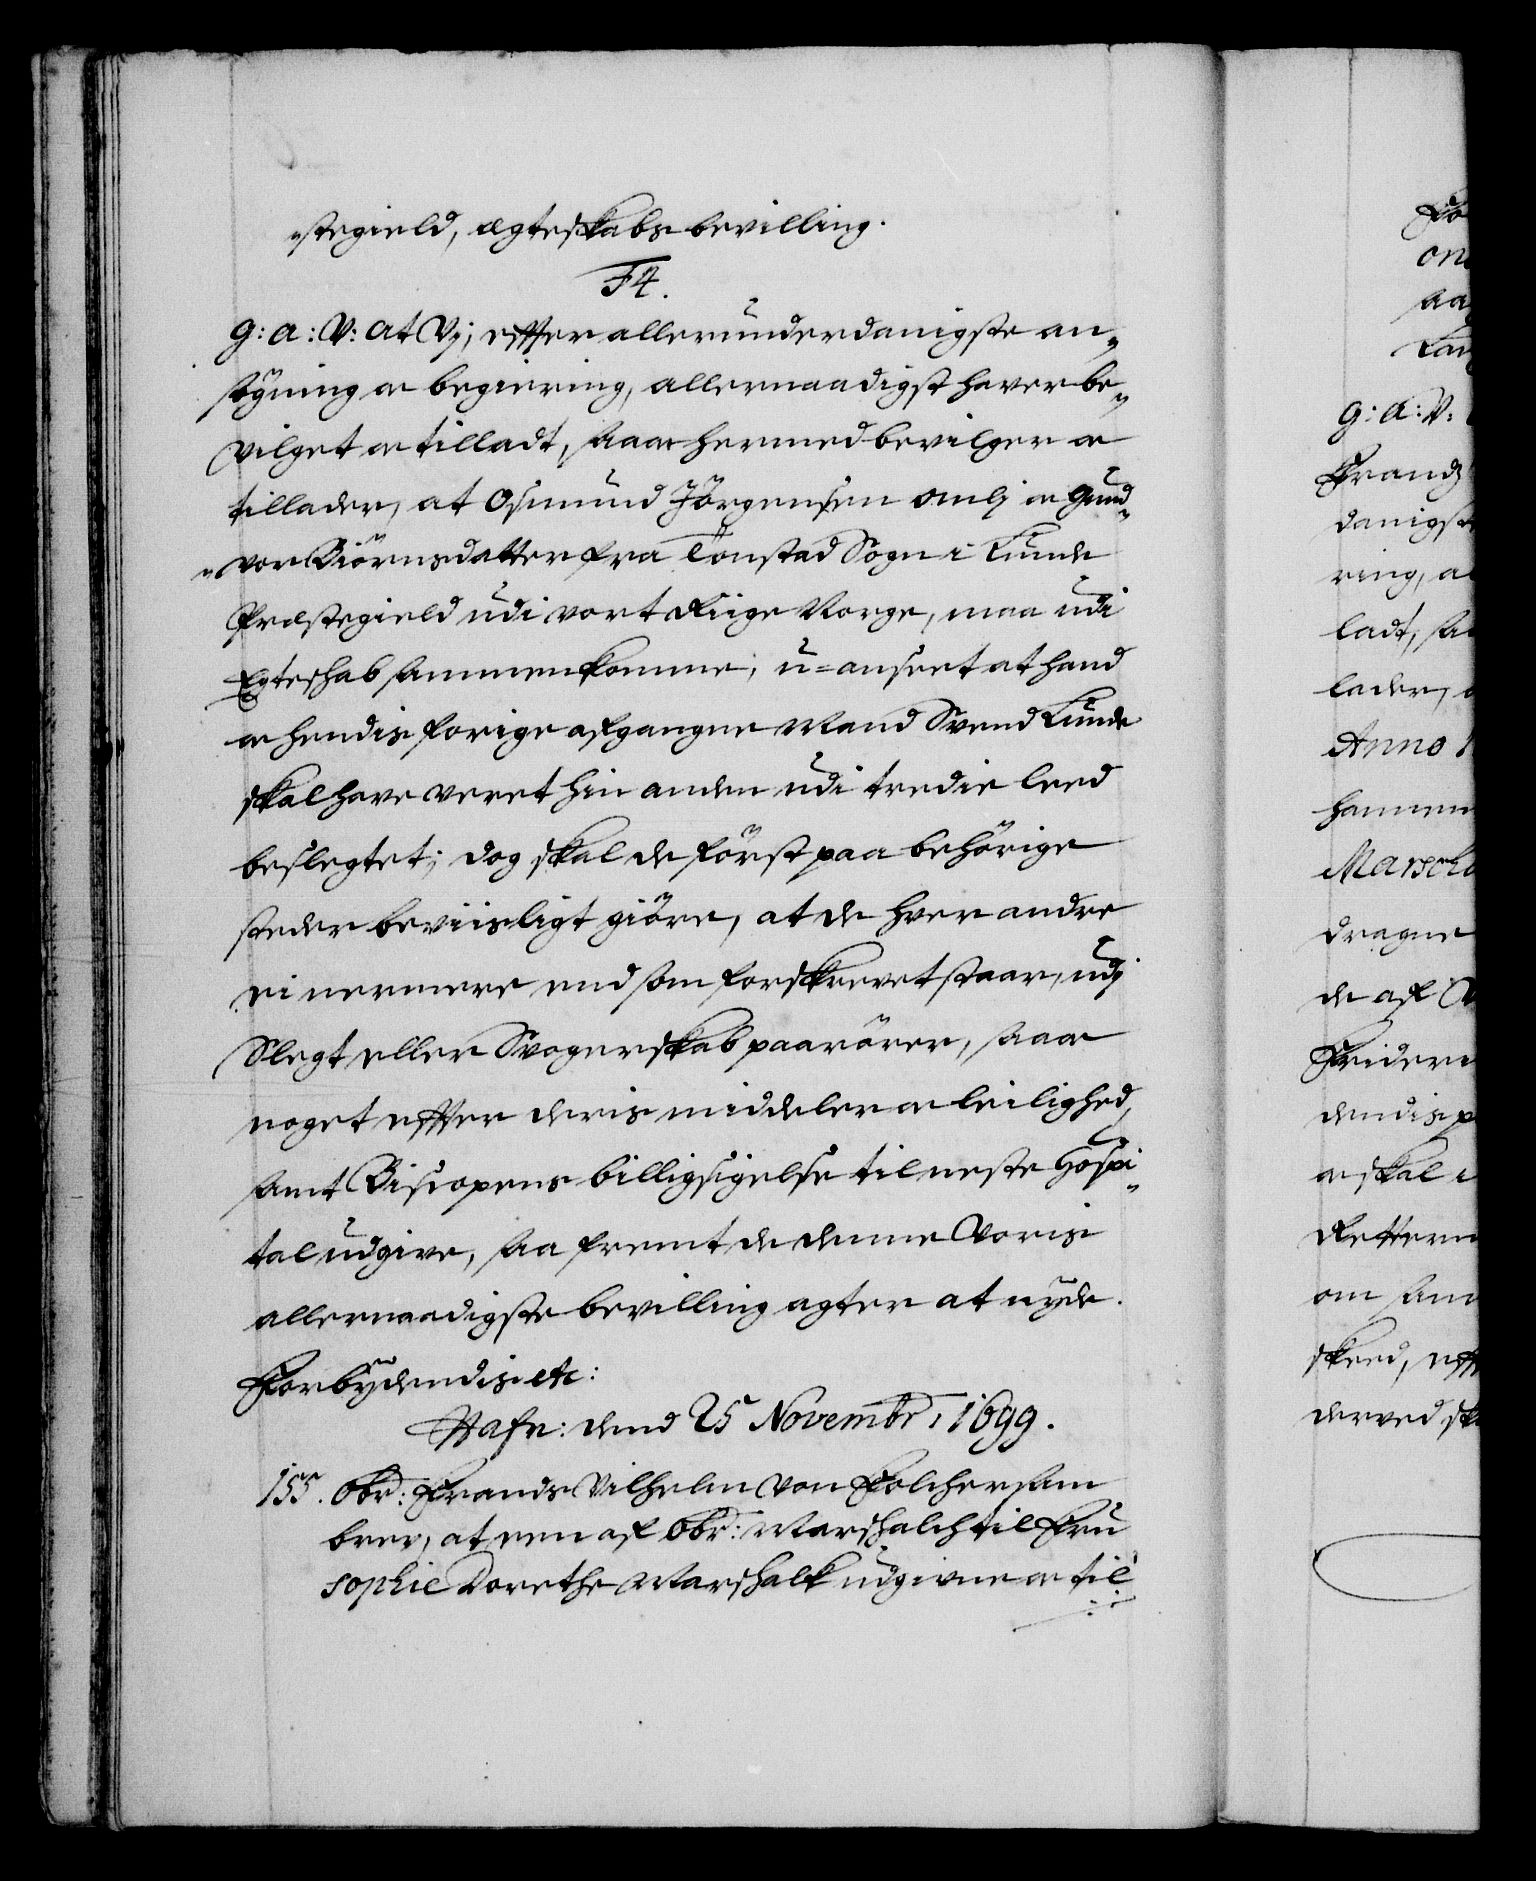 „stegield, ægteskabs bevilling.
F4.
G: A: V: At Vj, effter allerunderdanigste an„
søgning oc begiering, allernaadigst haver be„
vilget oc tilladt, saa oc hermed bevilger oc
tillader, at Osmund Jörgensen Omlj oc Gund„
„vor Biörnsdatter fra Tonstad Sogn i Lunde
Præstegield udi vort Riige Norge, maa udi
Egteskab sammenkomme, u=anseet at hand
oc hendis forige afgangne Mand Svend Lunde
skal have veret hin anden udi tredie leed
beslegtet; dog skal de först paa behörige
steder beviisligt giöre, at de hver andre
ei nermere end som forskrevet staar, udj
Slegt eller Svogerskab paarörer, saa oc
noget effter deris middeler oc leilighed,
samt Biscopens billigsigelse til neste Hospi„
tal udgive, saa fremt de denne Voris
allernaadigste bevilling agter at nyde.
Forbydendis etc:
Hafn: dend 25 Novembr: 1699.
155. Obr: Frands Vilhelm von Folchersam
brev, at een af Obr: Marschalch til Fru
Sophie Dorethe Marschalk udgivne oc til
Fo
on
aa
Lan
G: A: V:
Frandz
danigste
ring, al
ladt, sa
lader, a
Anno 1
hannem
Marscha
dragne
de af V
Frideri
dendis p
oc skal i
Retterne
om sam
skeed, eff
derved ska